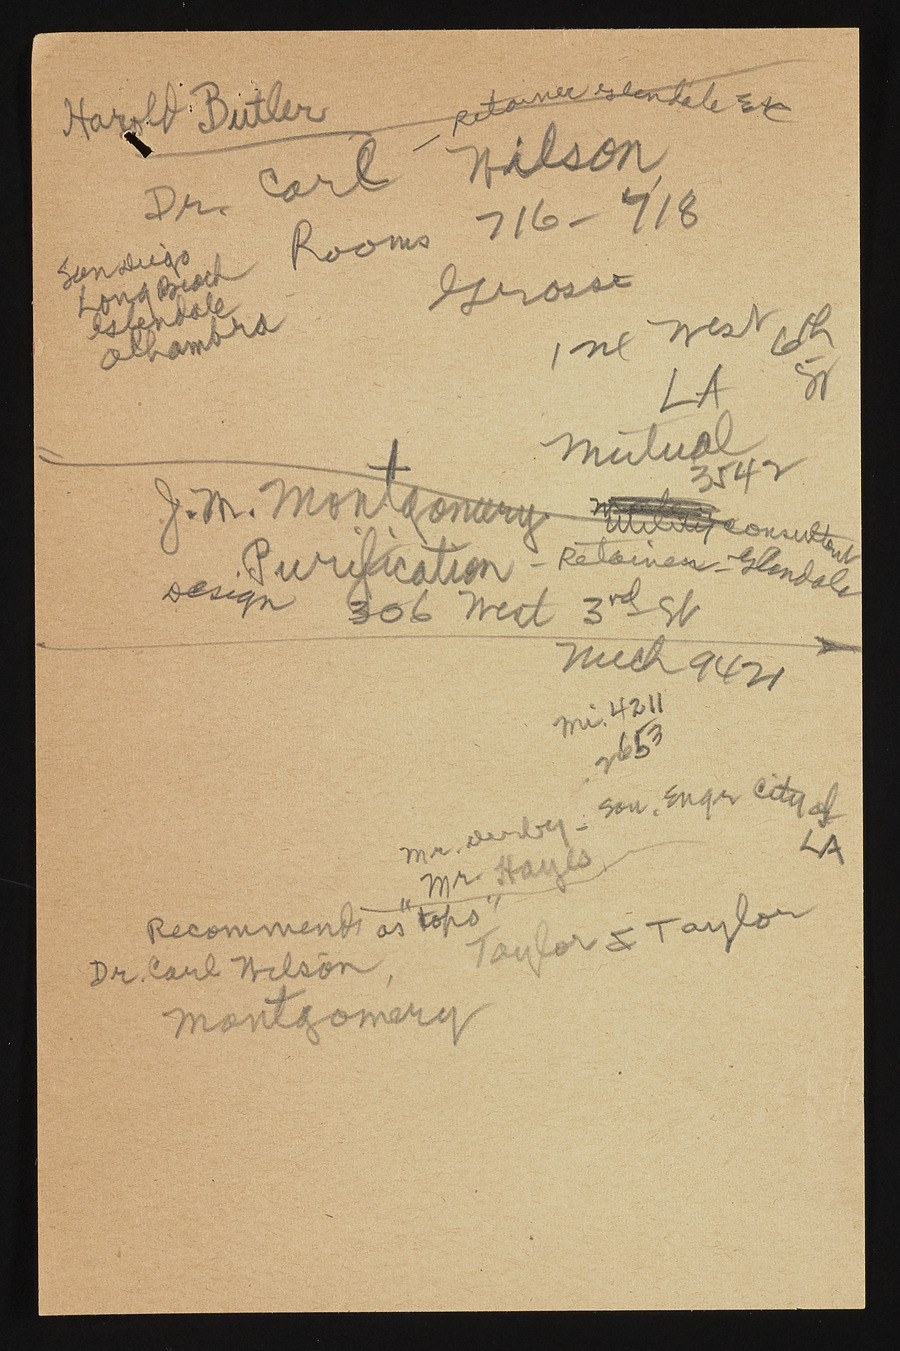 Harold Butler
- Retainer Glendale Etc
Dr. Carl Wilson,
Rooms 716-718
San Diego
Long Beach
Glendale
Alhambra
Grosse
West 6th
St
LA
Mutual
3542
J. M. Montgomery
Utility consultant
Purification - Retainer - Glendale
Design 306 West 3rd St
Mich 9421
Mi. 4211
2653
Mr. Derby - San. Engr City of
LA
Mr. Hayes
Recommends as "tops"
Dr. Carl Wilson, Taylor & Taylor
Montgomery